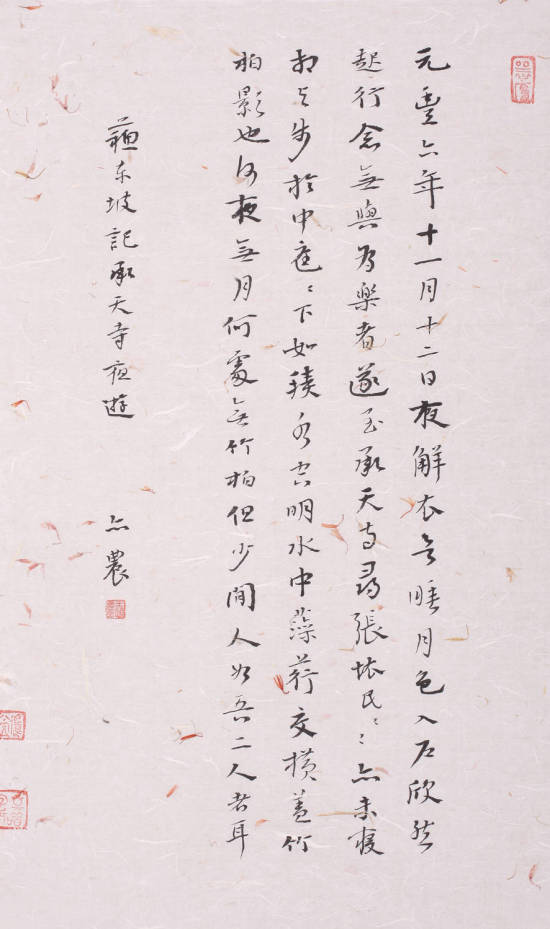 元豐六年十一月十二日夜解衣欲睡月色入戶欣然
起行念無與為樂者遂至承天寺尋張懷民〻亦未寢
相與步於中庭〻下如積水空明水中藻荇交橫蓋竹
柏影也何夜無月何處無竹柏但少閒人如吾二人者耳
蘇東坡記承天寺夜遊 亦農